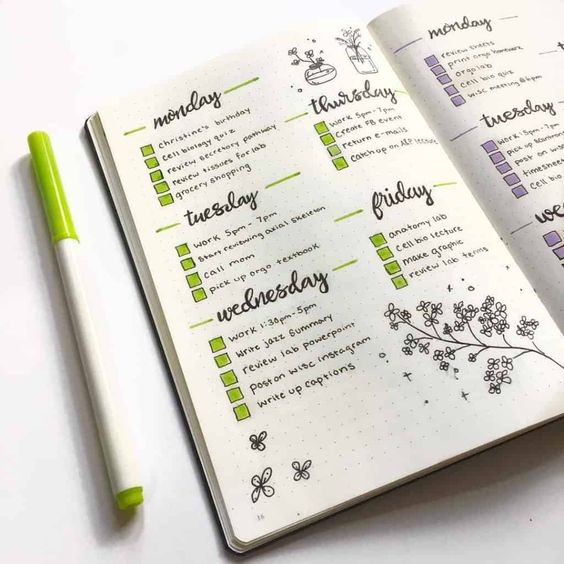 monday
christine's birthday
cell biology quiz
review secretory pathway
review tissues for lab
grocery shopping
tuesday
work 5pm - 7pm
start reviewing axial skeleton
call mom
pick up orgo textbook
wednesday
work 1:30pm-5pm
write jazz summary
review lab powerpoint
post on wisc instagram
write up captions
thursday
work 5pm-7pm
create FB event
return e-mails
catch up on A&P lecture
friday
anatomy lab
cell bio lecture
make graphic
review lab terms
16
monday
review sheets
print orgo homework
orgo lab
cell bio quiz
wisc meeting @ 6pm
tuesday
work 5pm-7pm
pick up
post on wisc
timesheet
cell bio
we
t